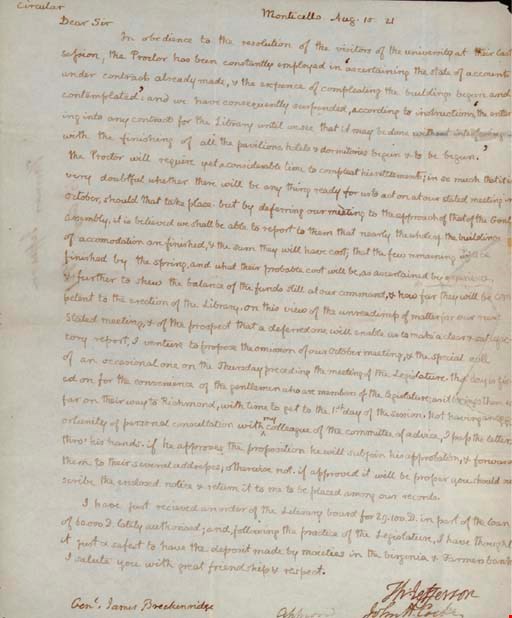 Circular
Monticello Aug. 15. 21
Dear Sir
In obedience to the resolution of the visitors of the university at their last
session, the Proctor has been constantly employed in ascertaining the state of accounts
under contracts already made, & the expence of compleating the buildings begun and
contemplated; and we have consequently suspended, according to instructions, the enter
ing into any contracts for the Library until we see that it may be done without interfering
with the finishing of all the pavilions, hotels & dormitories begun & to be begun.
The Proctor will require yet a considerable time to compleat his settlements; in so much that it is
very doubtful whether there will be any thing ready for us to act on at our stated meeting in
October, should that take place. but by deferring our meeting to the approach of that of the Genl
Assembly, it is believed we shall be able to report to them that nearly the whole of the buildings
of accomodation are finished, & the sum they will have cost; that the few remaining will be
finished by the spring, and what their probable cost will be, as ascertained by experience,
& further to shew the balance of the funds still at our command, & how far they will be com
petent to the erection of the Library. on this view of the unreadiness of matter for our next
stated meeting, & of the prospect that a deferred one will enable us to make a clear & satisfac
tory report, I venture to propose the omission of our October meeting, & the special call
of an occasional one on the Thursday preceding the meeting of the Legislature. that day is fix
ed on for the convenience of the gentlemen who are members of the legislature, as it brings them so
far on their way to Richmond, with time to get to the 1st day of the session. Not having an opp
ortunity of personal consultation with my colleague of the committee of advice, I pass the letters
thro' his hands. if he approves the proposition he will subjoin his approbation, & forward
them to their several addresses; otherwise not. if approved it will be proper you should sub
scribe the enclosed notice & return it to me to be placed among our records.
I have just recieved an order of the Literary board for 29,100. D. in part of the loan
of 60,000 D. lately authorised; and, following the practice of the Legislature, I have thought
it just & safest to have the deposit made by moieties in the Virginia & Farmers banks
I salute you with great friendship & respect.
Th: Jefferson
Genl. James Breckenridge
Approved John H. Cocke